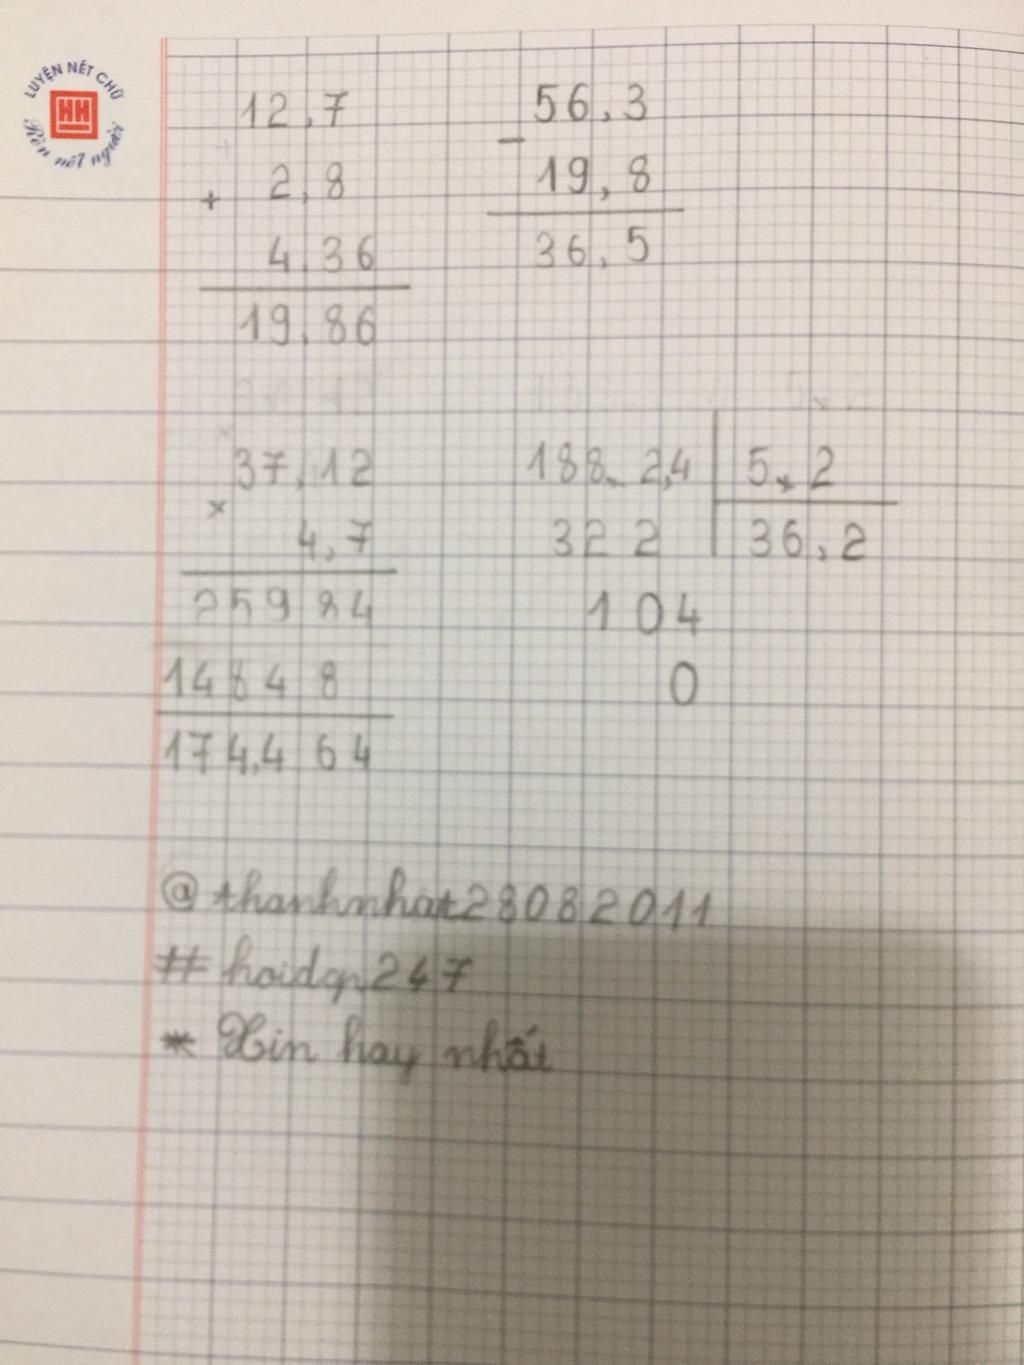 LUYỆN NÉT CHỮ
HH
Rèn nết người
12,7
+ 2,8
4,36
19,86
56,3
- 19,8
36,5
37,12
× 4,7
25984
14848
174,464
188,2,4 5,2
322 36,2
104
0
@thanhnhat28082011
#hoidap247
* Xin hay nhất